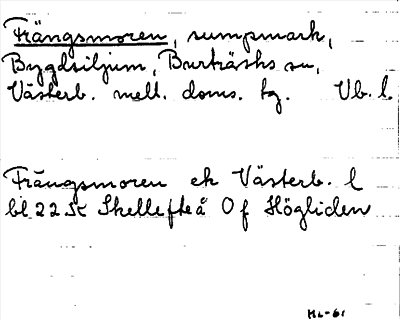 Frängsmoren, sumpmark,
Bygdsiljum, Burträsks sn,
Västerb. mell. doms. tg. Vb. l.
Frängsmoren ek Västerb. l
bl. 22 K Skellefteå Of Högliden
HL-61